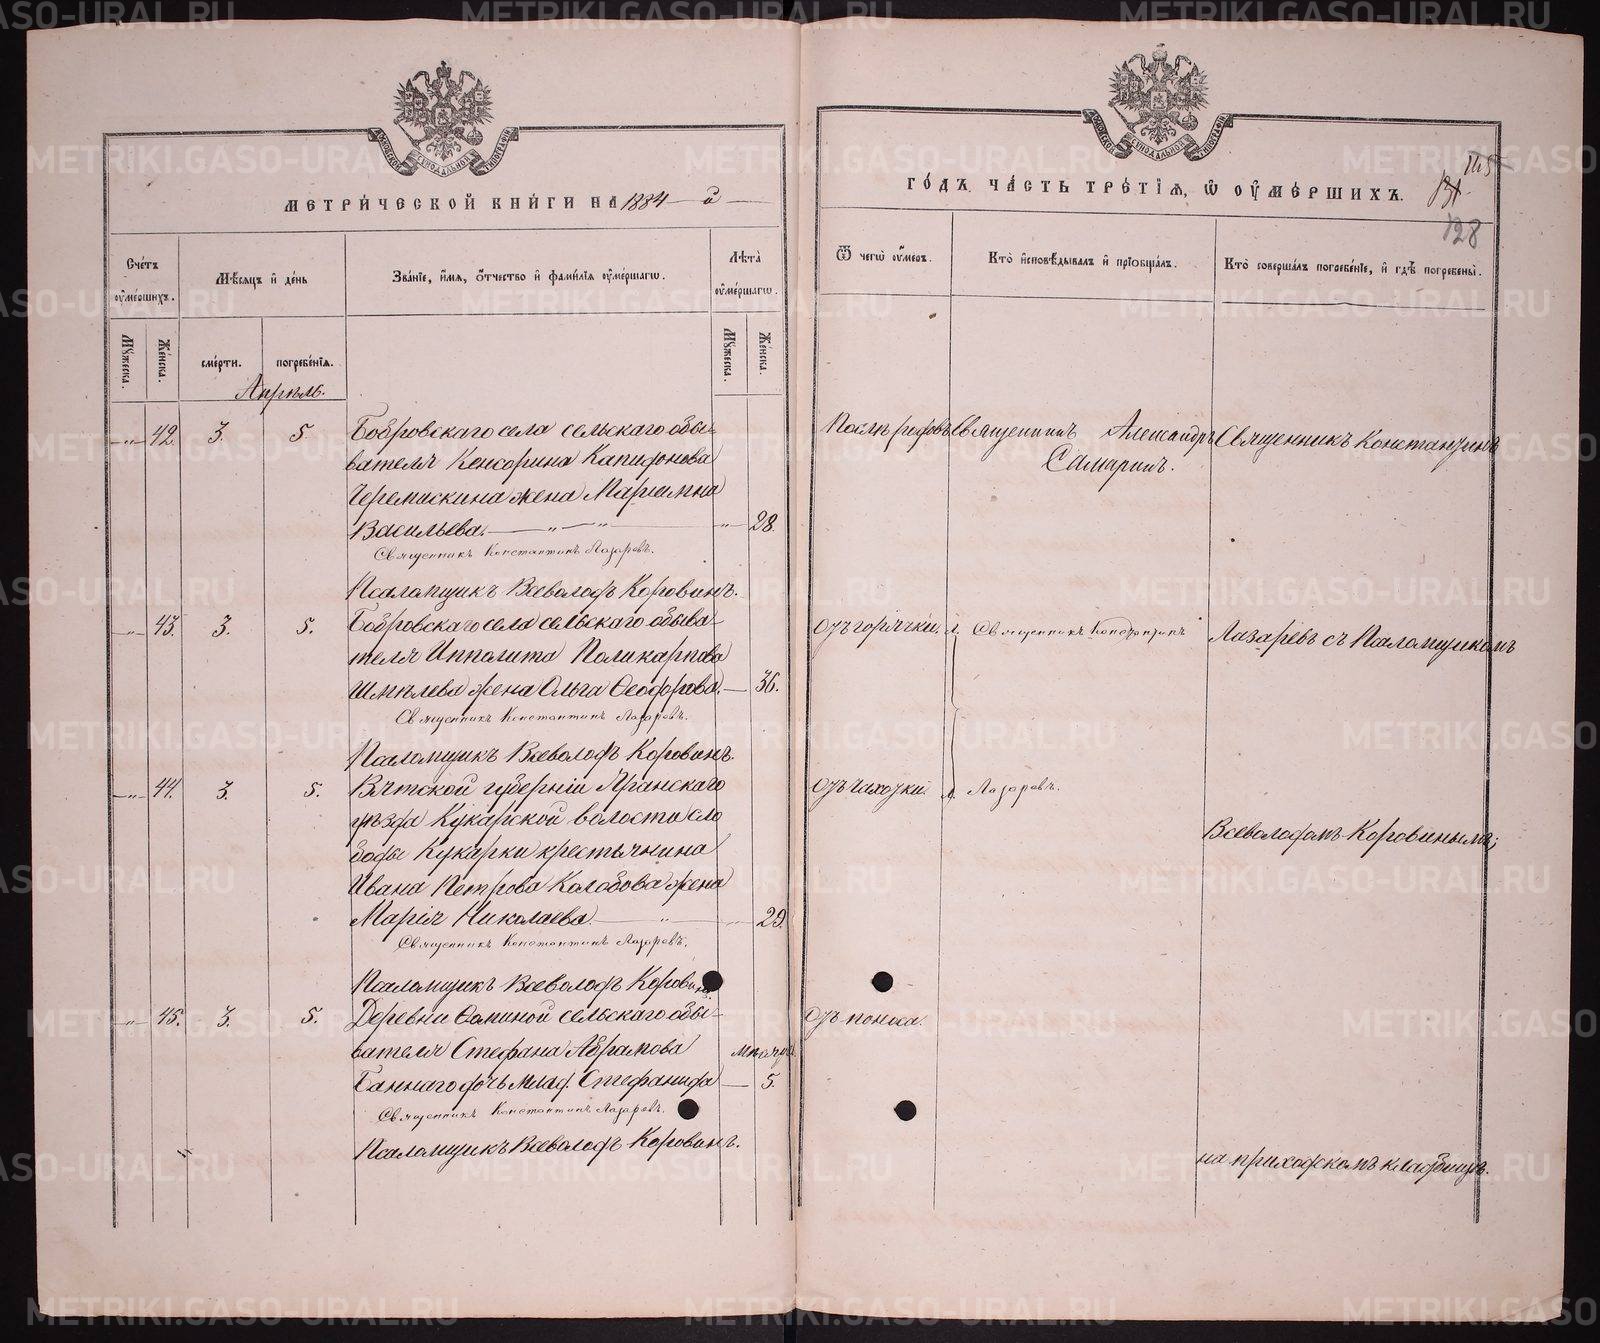 МЕТРИ́ЧЕСКОЙ КНИ́ГИ НА 1884-й
Сче́тъ ᲂу҆ме́ршихъ.
Мѣ́сяцъ и҆ де́нь
Зва́нїе, и҆́мя, ѻ҆́тчество и҆ фами́лїя ᲂу҆ме́ршагѡ.
Лѣ́та ᲂу҆ме́ршагѡ.
Мꙋ́жеска.
Же́нска.
сме́рти.
погребе́нїя.
Мꙋ́жеска.
Же́нска.
Апрѣль.
42. 3. 5. Бобровскаго села сельскаго обы-
вателя Кенсорина Капидонова
Черемискина жена Мариамна
Васильева. 28.
Священникъ Константинъ Лазаревъ.
Псаломщикъ Всеволодъ Коровинъ.
43. 3. 5. Бобровскаго села сельскаго обыва-
теля Ипполита Поликарпова
Шмелева жена Ольга Ѳеодорова. 36.
Священникъ Константинъ Лазаревъ.
Псаломщикъ Всеволодъ Коровинъ.
44. 3. 5. Вятской губерніи Яранскаго
уѣзда Кукарской волости сло
боды Кукарки крестьянина
Ивана Петрова Колобова жена
Марія Николаева. 29.
Священникъ Константинъ Лазаревъ.
Псаломщикъ Всеволодъ Коровинъ
45. 3. 5. Деревни Ѳоминой сельскаго обы-
вателя Стефана Абрамова мѣсяцъ
Баннаго дочь млад. Стефанида 5.
Священникъ Константинъ Лазаревъ.
Псаломщикъ Всеволодъ Коровинъ.
ГО́ДЪ ЧА́СТЬ ТРЕ́ТЇЯ, Ѽ ОУ҆МЕ́РШИХЪ.
145
128
Ѿ чегѡ̀ ᲂу҆́меръ.
Кто̀ и҆сповѣ́дывалъ и҆ прїѡбща́лъ.
Кто̀ соверша́лъ погребе́нїе, и҆ гдѣ̀ погребены̀.
Послѣ родовъ Священникъ Александръ Священникъ Константинъ
Самаринъ.
Отъ горячки. Священникъ Константинъ Лазаревъ съ Псаломщикомъ
Отъ чахотки. Лазаревъ.
Всеволодомъ Коровинымъ;
Отъ поноса.
на приходскомъ кладбищѣ.